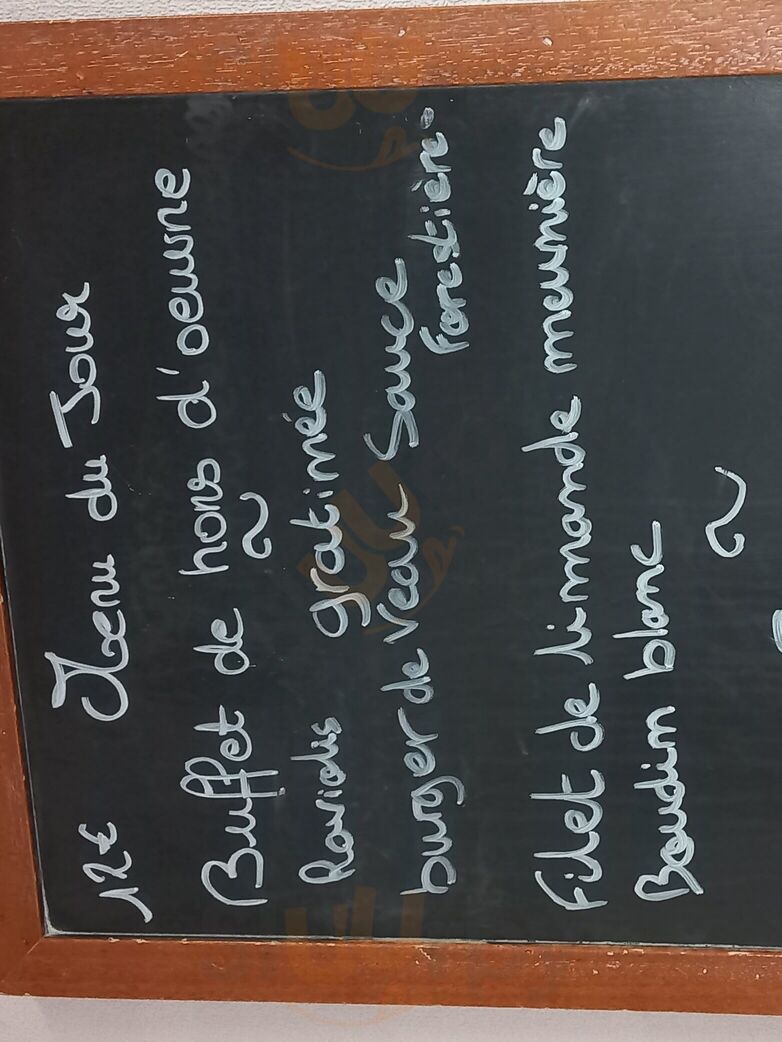 12€ Menu du Jour
Buffet de hors d'oeuvre
~
Raviolis gratinée
burger de veau Sauce
forestière
Filet de limande meunière
Boudin blanc
~